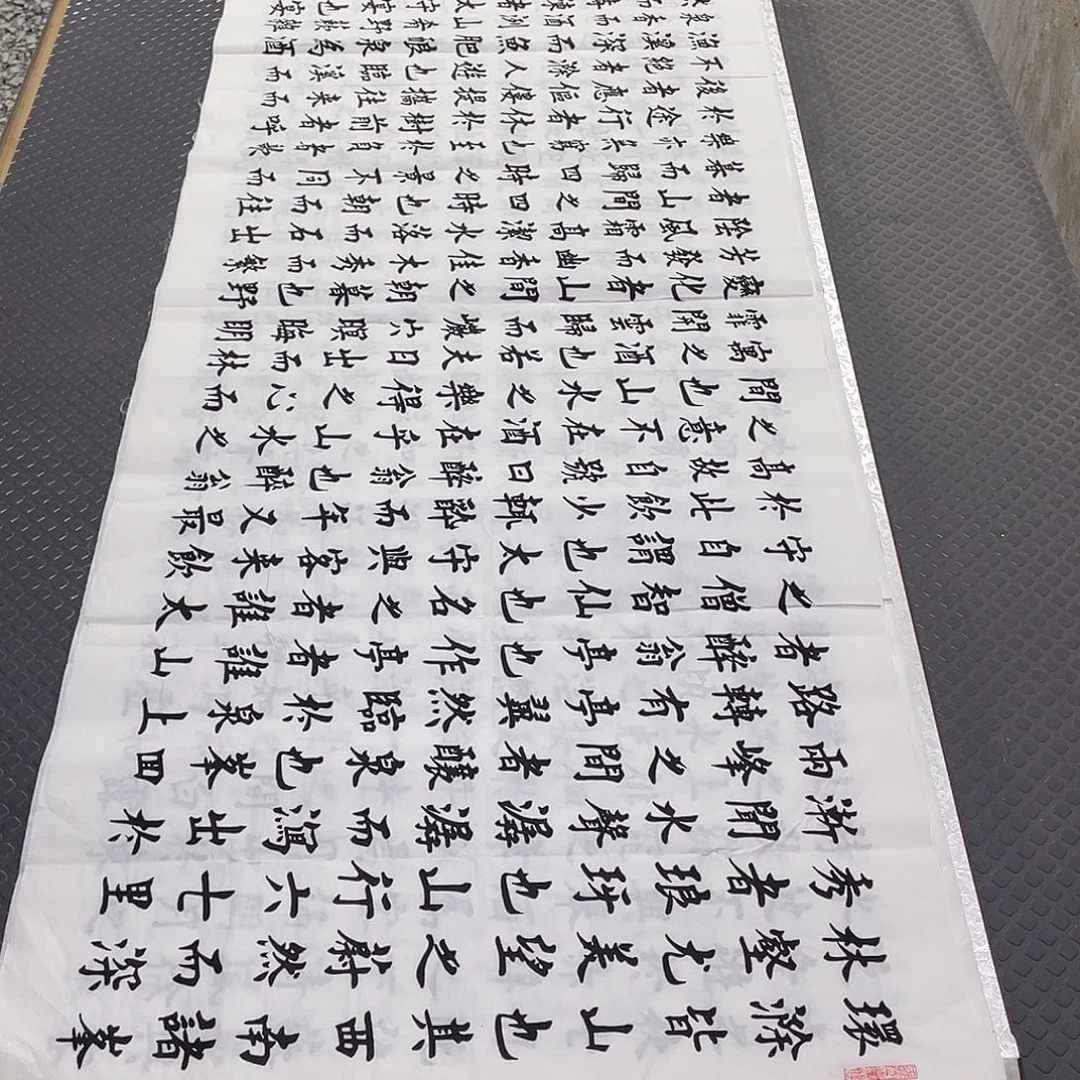 環滁皆山也其西南諸峯
林壑尤美望之蔚然而深
秀者琅玡也山行六七里
漸聞水聲潺潺而瀉出於
兩峰之間者釀泉也峯回
路轉有亭翼然臨於泉上
者醉翁亭也作亭者誰山
之僧智仙也名之者誰太
守自謂也太守與客來飲
於此飲少輒醉而年又最
高故自號曰醉翁也醉翁
之意不在酒在乎山水之
間也山水之樂得之心而
寓之酒也若夫日出而林
霏開雲歸而巖穴暝晦明
變化者山間之朝暮也野
芳發而幽香佳木秀而繁
陰風霜高潔水落而石出
者山間之四時也朝而往
暮而歸四時之景不同而
樂亦無窮也至於負者歌
於途行者休於樹前者呼
後者應傴僂提攜往來而
不絕者滁人遊也臨溪而
漁溪深而魚肥
泉香而酒洌山肴野